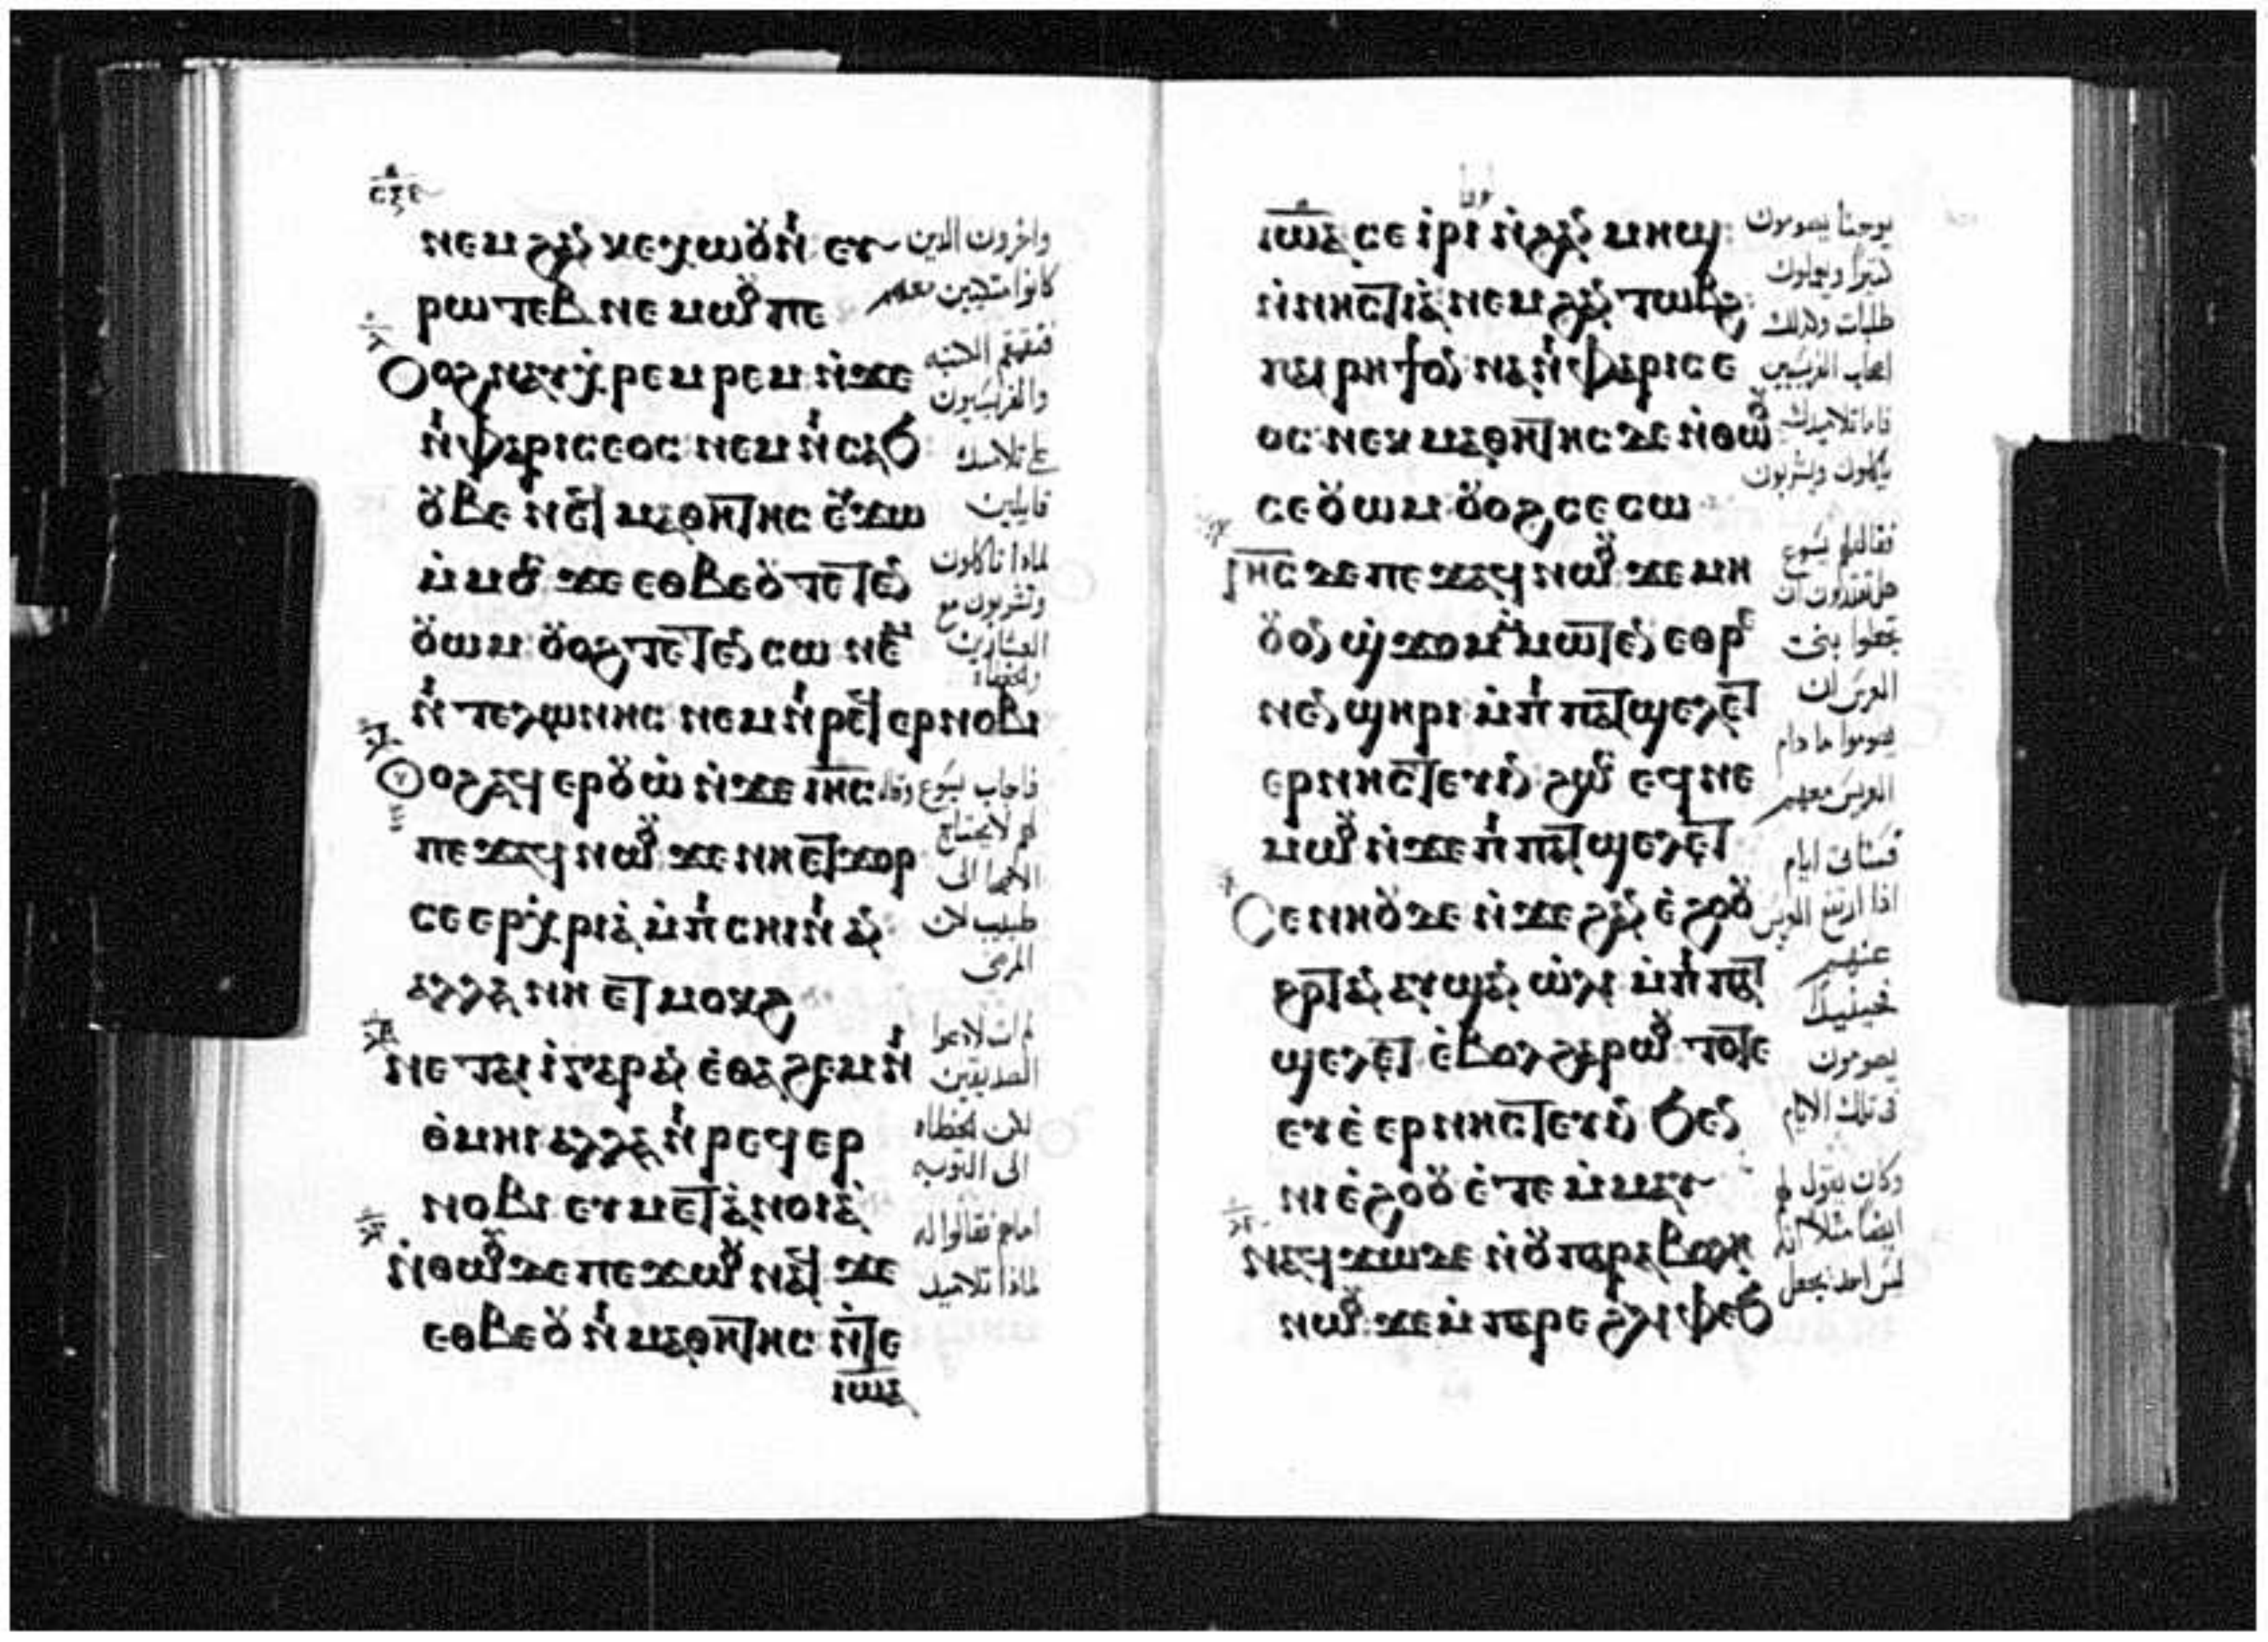 ⲛⲉⲙ ϩⲁⲛ ⲕⲉⲭⲱⲟⲩⲛⲓ ⲉⲩ
ⲣⲱⲧⲉⲃ ⲛⲉⲙⲱⲟⲩ ⲡⲉ
ⲟⲩⲟϩ ⲛⲁⲩⲭⲣⲉⲙⲣⲉⲙ ⲛ̀ϫⲉ
ⲛⲓⲫⲁⲣⲓⲥⲉⲟⲥ ⲛⲉⲙ ⲛⲓⲥⲁϧ
ⲟⲩⲃⲉ ⲛⲉϥⲙⲁⲑⲏⲧⲏⲥ ⲉⲩϫⲱ
ⲙ̀ⲙⲟⲥ ϫⲉ ⲉⲑⲃⲉⲟⲩ ⲧⲉⲧⲉⲛ
ⲟⲩⲱⲙ ⲟⲩⲟϩ ⲧⲉⲧⲉⲛ ⲥⲱ ⲛⲉⲙ
ⲛⲓⲧⲉⲗⲱⲛⲏⲥ ⲛⲉⲙ ⲛⲓⲣⲉϥⲉⲣⲛⲟⲃⲓ
ⲟⲩⲟϩ ⲁϥⲉⲣⲟⲩⲱ̀ ⲛ̀ϫⲉ ⲓⲏⲥ
ⲡⲉϫⲁϥ ⲛⲱⲟⲩ ϫⲉ ⲛⲏⲉⲧϫⲟⲣ
ⲥⲉⲉⲣⲭⲣⲓⲁ ⲙ̀ⲡⲓⲥⲏⲓⲛⲓ ⲁⲛ
ⲁⲗⲗⲁ ⲛⲏⲉⲧⲙⲟⲕϩ
ⲛⲉⲧⲁⲓ ⲓ̀ⲅⲁⲣ ⲁⲛ ⲉ̀ⲑⲁϩⲉⲙ ⲛⲓ
ⲑ̀ⲙⲏⲓ ⲁⲗⲗⲁ ⲛⲓⲣⲉϥⲉⲣ
ⲛⲟⲃⲓ ⲉⲩⲙⲉⲧⲁⲛⲟⲓⲁ
ⲛ̀ⲑⲱⲟⲩ ⲇⲉ ⲡⲉϫⲱⲟⲩ ⲛⲁϥ ϫⲉ
ⲉⲑⲃⲉⲟⲩ ⲛⲓⲙⲁⲑⲏⲧⲏⲥ ⲛ̀ⲧⲉ
ⲓⲱⲁ
واخرون الدين
كانوا متكيين معهم
والفريسيون
قايلين
لماذا تاكلون
وتشربون مع
العشارين
والخطاه
فاجاب يسوع وقال
لهم لا يحتاج
الاصحا الى
طبيب لان
المرضى
الصديقين
لكن الخطاه
الى التوبه
لماذا تلاميد
ⲓⲱⲁ ⲥⲉⲓ̀ⲣⲓ ⲛ̀ϩⲁⲛ ⲙⲏϣ
ⲛ̀ⲛⲏⲥⲧⲓⲁ ⲛⲉⲙ ϩⲁⲛ ⲧⲱⲃϩ
ⲡⲁⲓⲣⲏϯ ⲟⲛ ⲛⲁ ⲛⲓⲫⲁⲣⲓⲥⲉ
ⲟⲥ ⲛⲉⲕⲙⲁⲑⲏⲧⲏⲥ ⲇⲉ ⲛ̀ⲑⲱⲟⲩ
ⲥⲉⲟⲩⲱⲙ ⲟⲩⲟϩ ⲥⲉⲥⲱ
ⲓⲏⲥ ⲇⲉ ⲡⲉϫⲁϥ ⲛⲱⲟⲩ ϫⲉ ⲙⲏ
ⲟⲩⲟⲛ ϣϫⲟⲙ ⲙ̀ⲙⲱⲧⲉⲛ ⲉⲑⲣⲉ
ⲛⲉⲛϣⲏⲣⲓ ⲙ̀ⲡⲓⲡⲁⲧϣⲉⲗⲉⲧ
ⲉⲣⲛⲏⲥⲧⲉⲩⲓⲛ ϩⲱⲥ ⲉϥⲛⲉ
ⲙⲱⲟⲩ ⲛ̀ϫⲉ ⲡⲓⲡⲁⲧϣⲉⲗⲉⲧ
ⲥⲉⲛⲏⲟⲩ ⲇⲉ ⲛ̀ϫⲉ ϩⲁⲛ ⲉ̀ϩⲟⲟⲩ
ϩⲟⲧⲁⲛ ⲁⲩϣⲁⲛ ⲱ̀ⲗⲓ ⲙ̀ⲡⲓⲡⲁⲧ
ϣⲉⲗⲉⲧ ⲉ̀ⲃⲟⲗϩⲁⲣⲱⲟⲩ ⲧⲟⲧⲉ
ⲉⲩⲉ̀ⲉⲣⲛⲏⲥⲧⲉⲩⲓⲛ ϧⲉⲛ
ⲛⲓⲉ̀ϩⲟⲟⲩ ⲉ̀ⲧⲉⲙ̀ⲙⲁⲩ
ⲛⲁϥϫⲱ ⲇⲉ ⲛ̀ⲟⲩⲡⲁⲣⲁⲃⲟⲗⲏ
ⲛⲱⲟⲩ ϫⲉ ⲙ̀ⲡⲁⲣⲉ ϩⲗⲓ ⲫⲉϧ
لوقا
يوحنا يصومون
طلبات وكذلك
ياكلون ويشربون
فقال لهم يسوع
هل تقدرون ان
تجعلوا بنى
العرس ان
يصوموا ما دام
العريس معهم
فستاتى ايام
اذا ارتفع العريس
عنهم
فحينيذ
يصومون
فى تلك الايام
وكان يقول لهم
ايضا مثلا انه
ليس احد يجعل